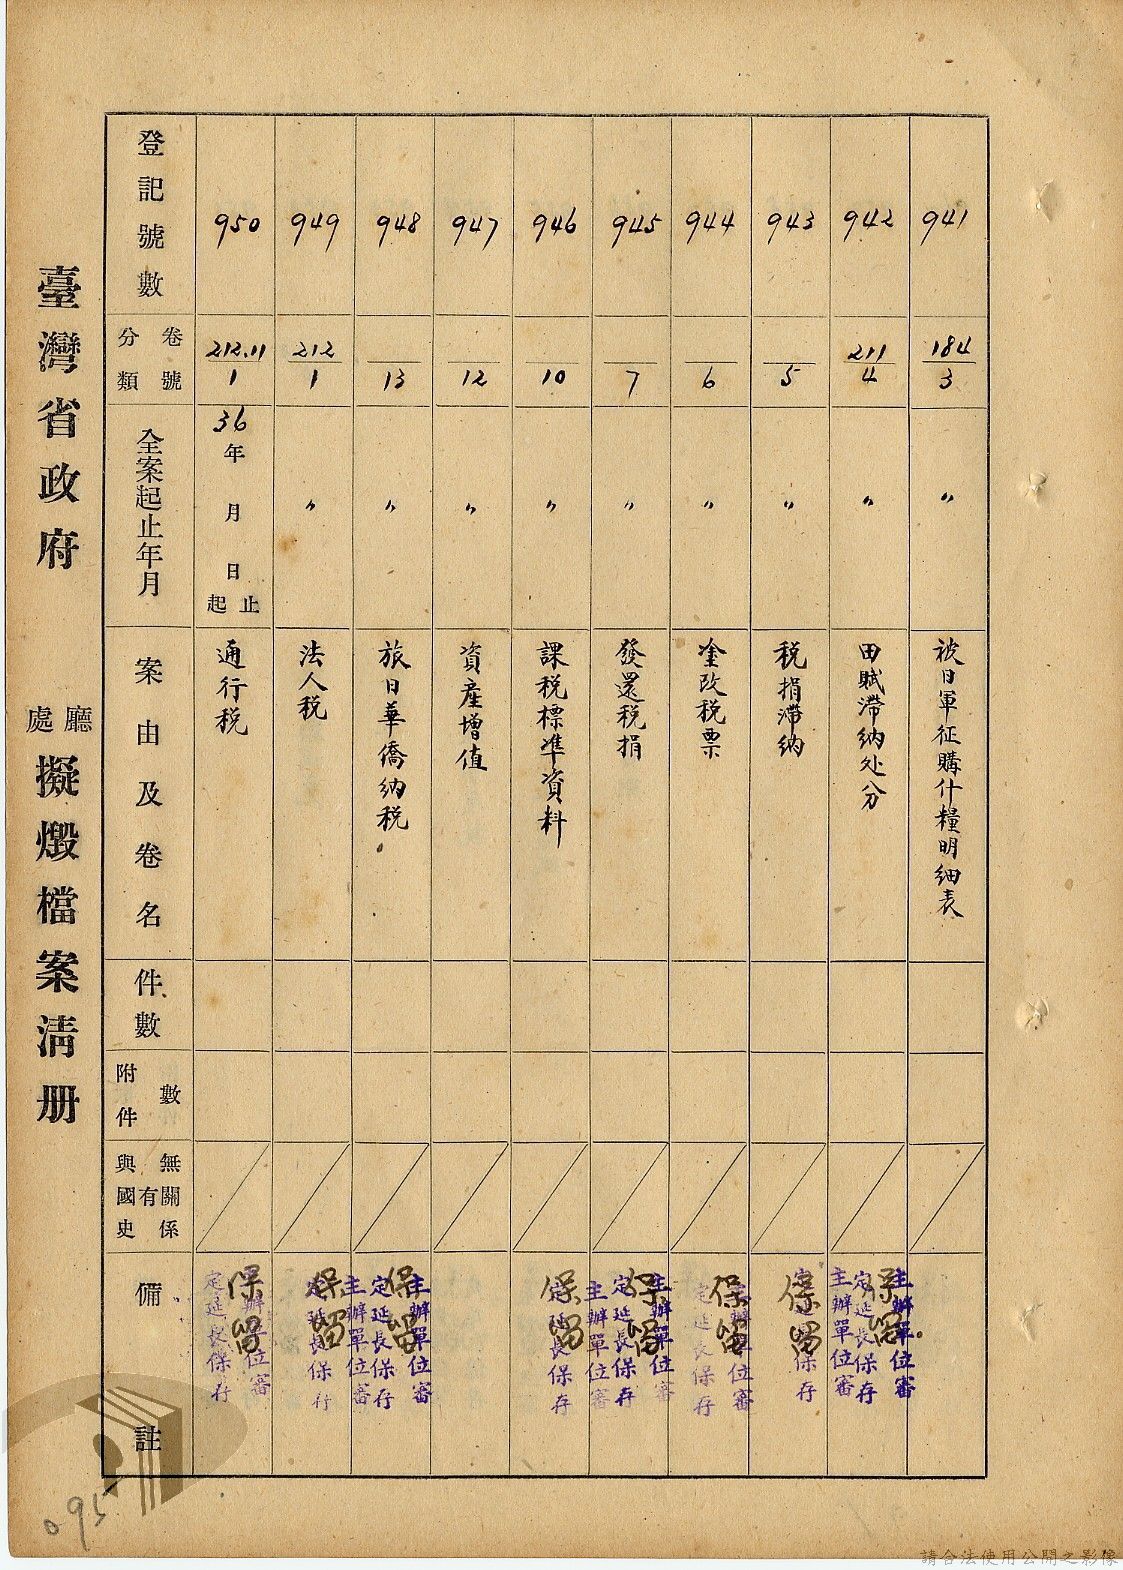 臺灣省政府 廳處 擬燬檔案清册
登記號數
卷號
分類
全案起止年月
案由及卷名
件數
附件數
與國史有無關係
備註
950
212.11
1
36年 月 日 起止
通行税
保留
主辦單位審定延長保存
949
212
1
〃
法人税
保留
主辦單位審定延長保存
948
13
〃
旅日華僑納税
保留
主辦單位審定延長保存
947
12
〃
資產增值
946
10
〃
課税標準資料
保留
主辦單位審定延長保存
945
7
〃
發還税捐
保留
主辦單位審定延長保存
944
6
〃
塗改税票
保留
主辦單位審定延長保存
943
5
〃
税捐滯納
保留
主辦單位審定延長保存
942
211
4
〃
田賦滯納处分
保留
主辦單位審定延長保存
941
184
3
〃
被日軍征購什糧明細表
095
請合法使用公開之影像